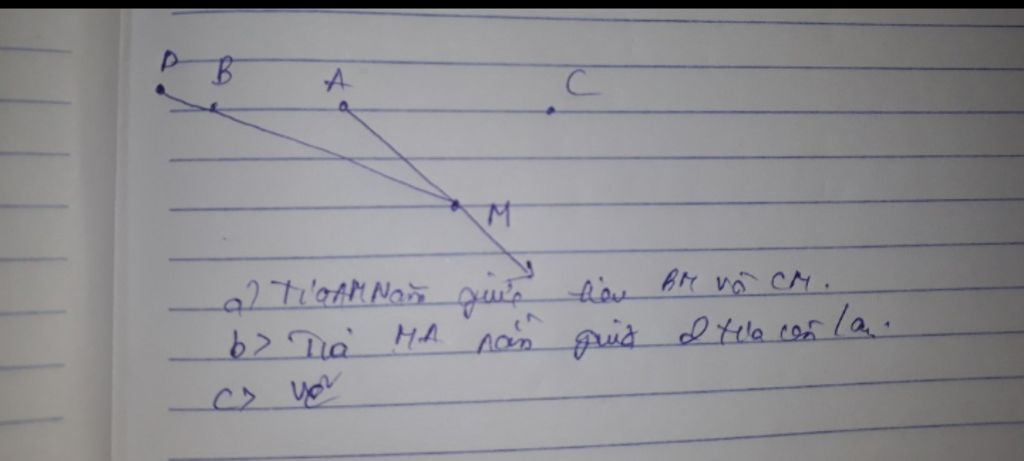 D B A C
M
a) Tia AM Nằm giữa tia BM và CM.
b) Tia MA nằm giữa 2 tia còn lại.
c) Vẽ